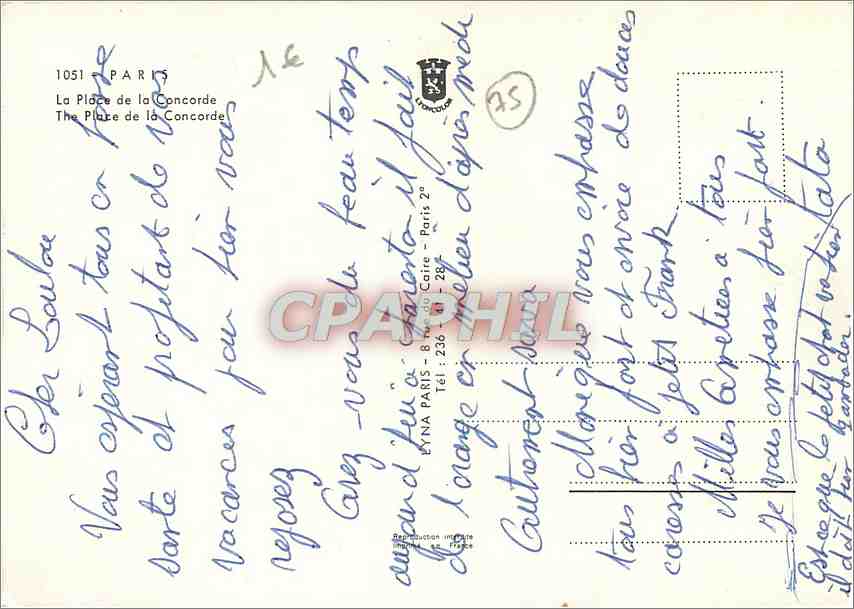 1051 - PARIS
La Place de la Concorde
The Place de la Concorde
1 €
75
LYONCOLOR
LYNA PARIS - 8 rue du Caire - Paris 2°
Tél : 236 - 41 - 28 -
Reproduction interdite
Imprimé en France
CPAPHIL
Cher Loulou
Vous espérant tous en bonne
santé et profitant de vos
vacances pour bien vous
reposez
Avez-vous du beau temps
aujourd'hui à il fait
de l'orage en milieu d'après midi
Autrement sava
Monique vous embrasse
tous bien fort et envoie de douces
caresses à petit Frank
Milles à tous
je vous embrasse bien fort.
tata
Est ce que le petit doit va bien
il doit bien gambader.